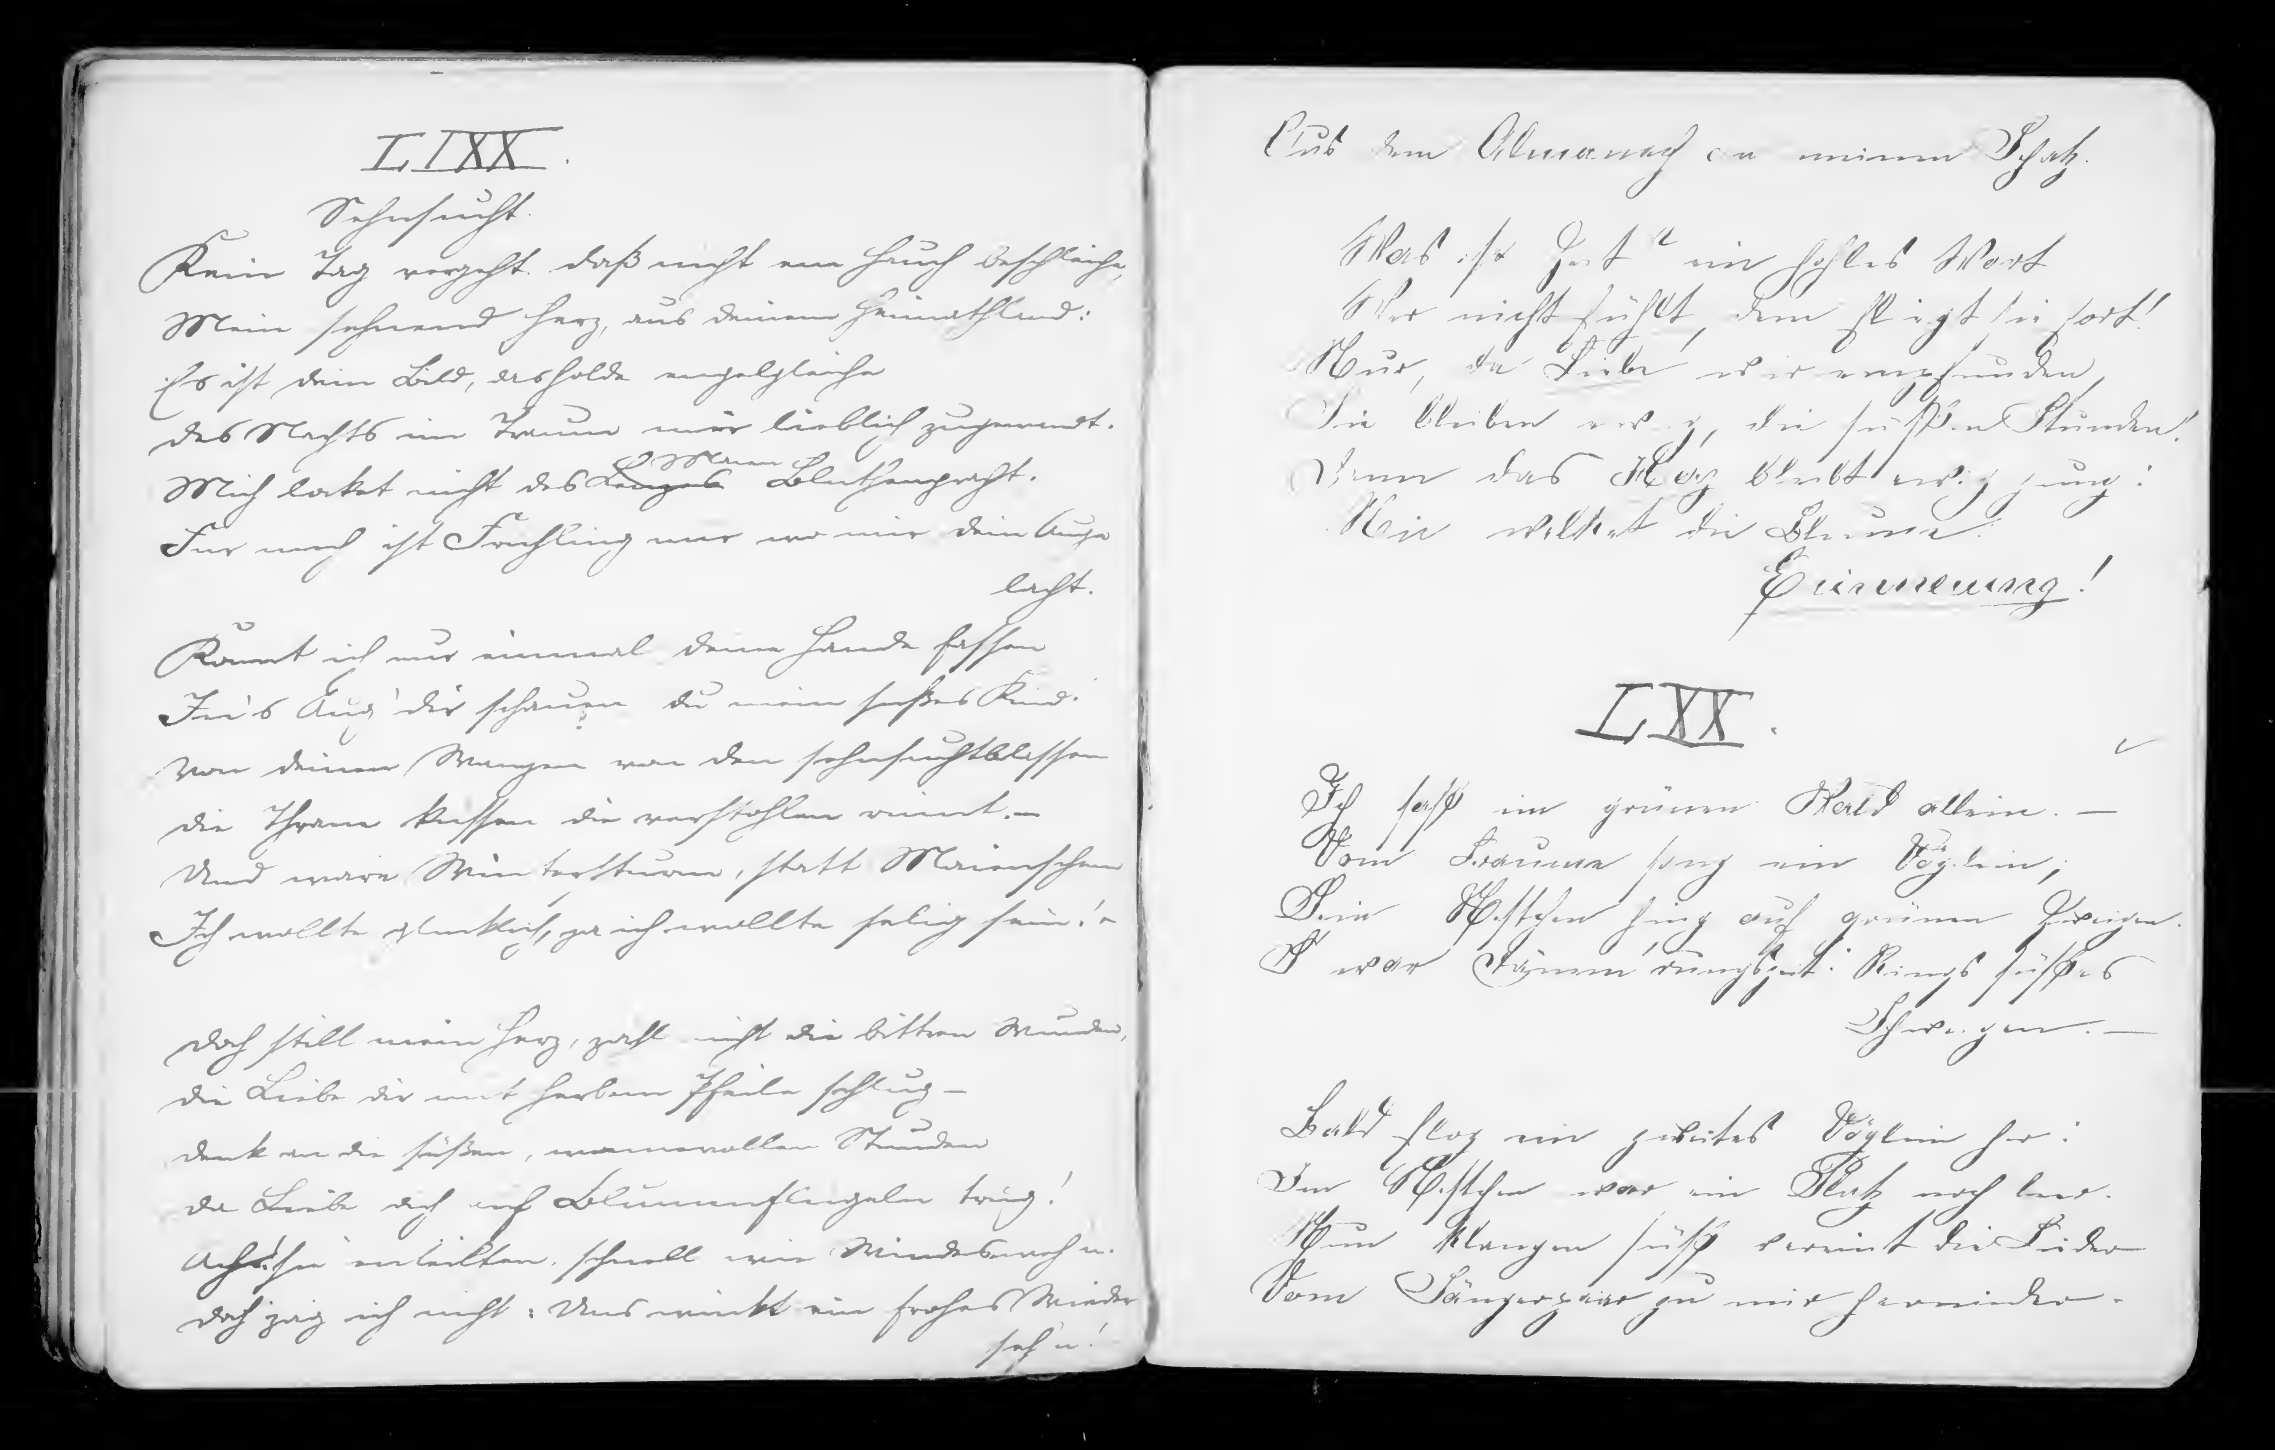 LIXX.
Sehnsucht.
Kein Tag vergeht, daß nicht ein Hauch beschleiche,
Mein sehnend Herz, aus deinem Heimathland:
Es ist dein Bild, das holde engelgleiche
des Nachts im Traum mir lieblich zugewandt.
Maien
Mich locket nicht des Lenzes Blüthenpracht.
Für mich ist Frühling nur wo mir dein Auge
lacht.
Könnt ich nur einmal deine Hände fassen
In's Aug' dir schauen du mein süßes Kind.
Von deinen Wangen von den sehnsuchtblassen
die Thräne küssen die verstohlen rinnt. –
Und wäre Wintersturm, statt Maienschein
Ich wollte glücklich, ja ich wollte selig sein! –
doch still mein Herz, zähl nicht die bittren Wunden,
die Liebe dir mit herbem Pfeile schlug –
denk an die süßen, wonnevollen Stunden
da Liebe dich auf Blumenflügeln trug!
Ach! sie enteilten, schnell wie Windesweh'n.
doch zag ich nicht: Uns winkt ein frohes Wieder
seh'n!
Aus dem Almanach an meinen Schatz.
Was ist Zeit? ein hohles Wort
Wer nicht fühlt, dem fliegt sie fort!
Nur, da Liebe wir empfunden,
Sie bleiben ewig, die süßen Stunden!
Denn das Herz bleibt ewig jung:
Nie welket die Blume:
Erinnerung!
LXX.
Ich saß im grünen Wald allein. –
Vom Baume sang ein Vöglein;
Sein Nestchen hing auf grünen Zweigen.
S' war Dämm'rungszeit: Rings süßes
Schweigen. –
Bald flog ein zweites Vöglein her:
Im Nestchen war ein Platz noch leer.
Nun klangen süß vereint die Lieder
Vom Sängerpaar zu mir hernieder.